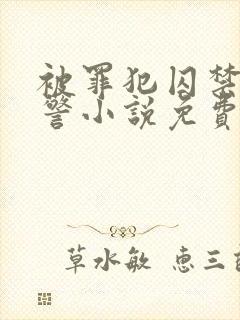 被罪犯囚禁
警小説免費
草水敏 惠三白